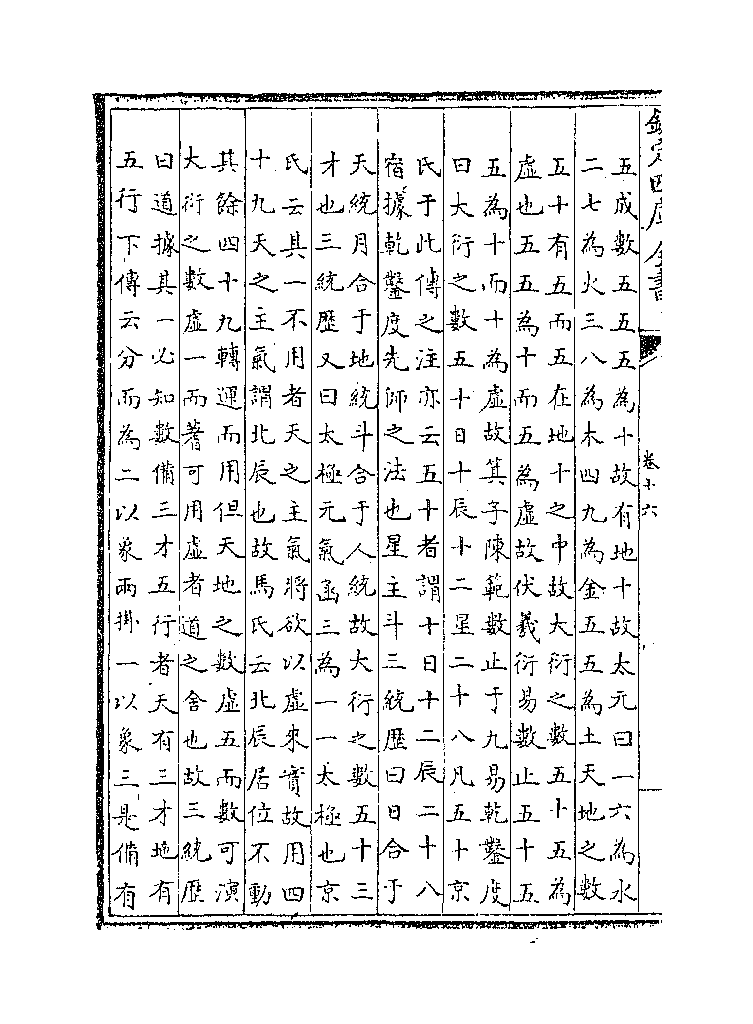 欽定四庫全書
卷十六
五成數五五五為十故有地十故太元曰一六為水
二七為火三八為木四九為金五五為土天地之數
五十有五而五在地十之中故大衍之數五十五為
虛也五五為十而五為虛故伏羲衍易數止五十五
五為十而十為虛故箕子陳範數止于九易乾鑿度
曰大衍之數五十日十辰十二星二十八凡五十京
氏于此傳之注亦云五十者謂十日十二辰二十八
宿據乾鑿度先師之法也星主斗三統歷曰日合于
天統月合于地統斗合于人統故大衍之數五十三
才也三統歷又曰太極元氣函三為一一太極也京
氏云其一不用者天之主氣將欲以虛來實故用四
十九天之主氣謂北辰也故馬氏云北辰居位不動
其餘四十九轉運而用但天地之數虛五而數可演
大衍之數虛一而蓍可用虛者道之舍也故三統歷
曰道據其一必知數備三才五行者天有三才地有
五行下傳云分而為二以象兩掛一以象三是備有